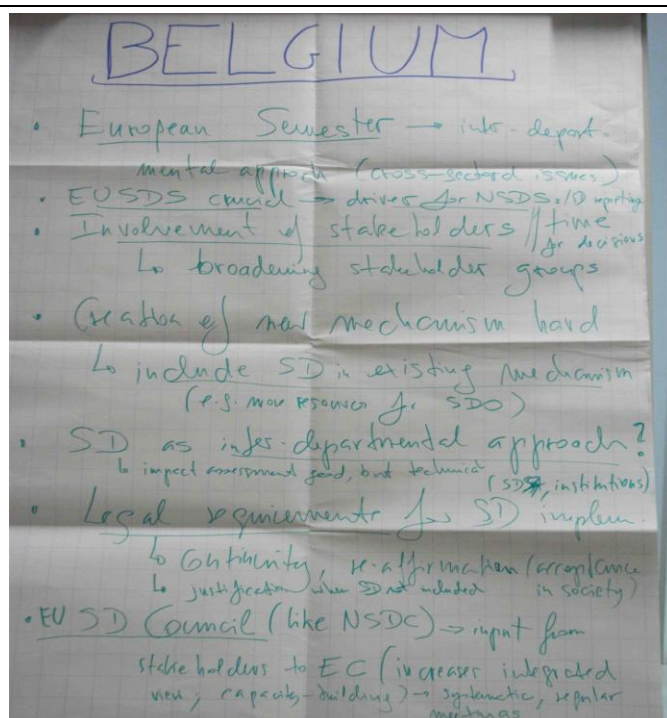 BELGIUM
• European Semester → inter-depart-
mental approch (cross-sectoral issues)
• EU SDS crucial → driver for NSDSs/SD reporting
• Involvement of stakeholders // time
for decisions
↳ broadening stakeholder groups
• Creation of new mechanism hard
↳ include SD in existing mechanism
(e.g. more resources for SDO)
• SD as inter-departmental approach?
↳ impact assessment good, but technical
(SDS, institutions)
• Legal requirements for SD implem.
↳ Continuity, re-affirmation (acceptance
in society)
↳ justification when SD not included
• EU SD Council (like NSDC) → input from
stakeholders to EC (increases integrated
view; capacity-building) → systematic, regular
meetings